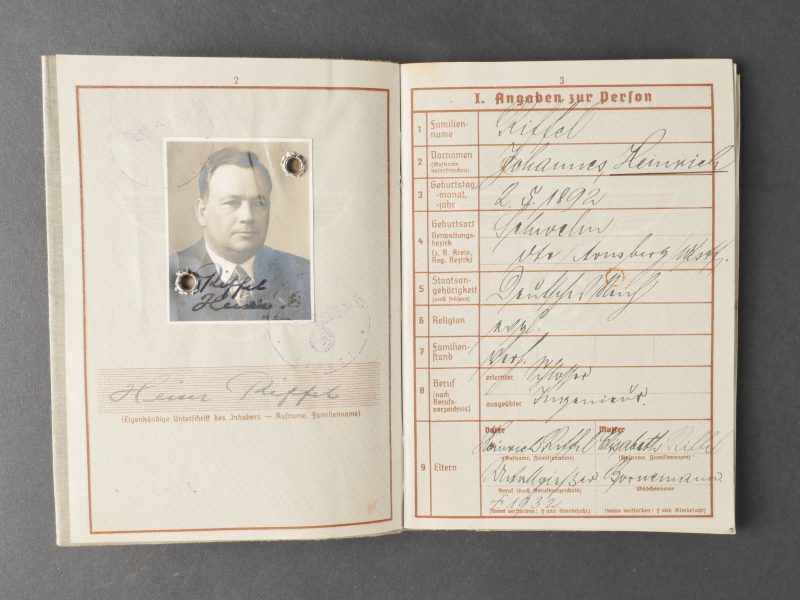 2
Riffel
Heinr
Heinr Riffel
(Eigenhändige Unterschrift des Inhabers — Rufname, Familienname)
3
I. Angaben zur Person
1 Familien-name Riffel
2 Vornamen (Rufname unterstreichen) Johannes, Heinrich
3 Geburtstag, -monat, -jahr 2. 5. 1892
4 Geburtsort Schwelm
Verwaltungs-bezirk (z. B. Kreis, Reg. Bezirk) Arnsberg
5 Staatsan-gehörigkeit (auch frühere) Deutsches Reich
6 Religion evgl.
7 Familien-stand verh.
8 Beruf (nach Berufs-verzeichnis) erlernter Schlosser
ausgeübter Ingenieur.
9 Eltern
Vater Mutter
Heinrich Riffel Elisabeth Riffel
(Rufname, Familienname) (Rufname, Familienname)
Bornemann
Beruf (nach Berufsverzeichnis) Mädchenname
† 1932
(wenn verstorben: † und Sterbejahr) (wenn verstorben: † und Sterbejahr)